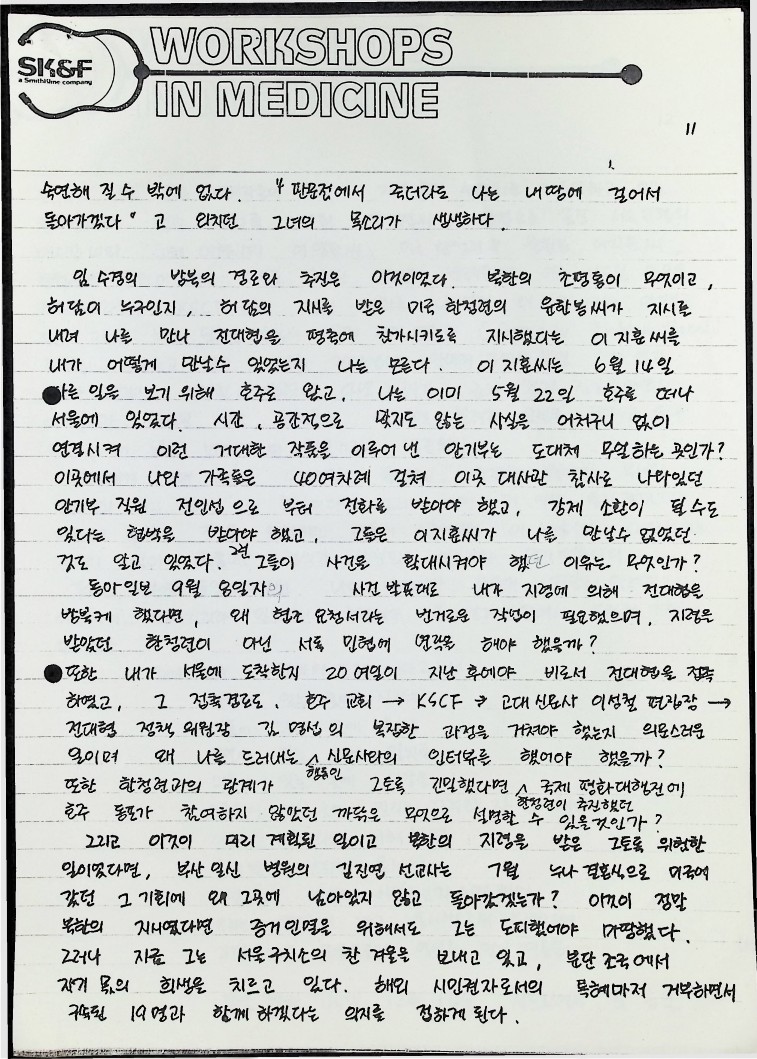 SK&F
a SmithKline company
WORKSHOPS
IN MEDICINE
11
숙연해 질 수 밖에 없다. "판문점에서 죽더라도 나는 내 땅에 걸어서
돌아가겠다" 고 외치던 그녀의 목소리가 생생하다.
임수경의 방북의 경로와 추진은 이것이었다. 북한의 조평통이 무엇이고,
허담이 누구인지, 허담의 지시를 받은 미국 한청련의 윤한봉씨가 지시를
내려 나를 만나 전대협을 평축에 참가시키도록 지시했다는 이지훈씨를
내가 어떻게 만날수 있었는지 나는 모른다. 이지훈씨는 6월 14일
다른 일을 보기 위해 호주로 왔고, 나는 이미 5월 22일 호주를 떠나
서울에 있었다. 시간, 공간적으로 맞지도 않는 사실을 어처구니 없이
연결시켜 이런 거대한 작품을 이루어 낸 안기부는 도대체 무얼하는 곳인가?
이곳에서 나와 가족들은 40여차례 걸쳐 이곳 대사관 참사로 나와있던
안기부 직원 전인섭으로 부터 전화를 받아야 했고, 강제 소환이 될 수도
있다는 협박을 받아야 했고, 그들은 이지훈씨가 나를 만날수 없었던
것도 알고 있었다. 그들이 사건을 확대시켜야 했던 이유는 무엇인가?
동아일보 9월 8일자의 사건 발표대로 내가 지령에 의해 전대협을
방북케 했다면, 왜 협조 요청서라는 번거로운 작년이 필요했으며, 지령을
받았던 한청련이 아닌 서독 민협에 연락을 해야 했을까?
또한 내가 서울에 도착한지 20여일이 지난 후에야 비로서 전대협을 접촉
하였고, 그 접촉경로도, 호주 교회 → KSCF → 고대신문사 이성철 편집장 →
전대협 정책위원장 김명섭의 복잡한 과정을 거쳐야 했는지 의문스러운
일이며 왜 나를 드러내는 행동인 신문사와의 인터뷰를 했어야 했을까?
또한 한청련과의 관계가 그토록 긴밀했다면 한청련이 추진했던 국제 평화대행진에
호주 동포가 참여하지 않았던 까닭은 무엇으로 설명할 수 있을것인가?
그리고 이것이 미리 계획된 일이고 북한의 지령을 받은 그토록 위험한
일이었다면, 부산 일신 병원의 김진엽 선교사는 7월 누나 결혼식으로 미국에
갔던 그 기회에 왜 그곳에 남아있지 않고 돌아갔겠는가? 이것이 정말
북한의 지시였다면 증거인멸을 위해서도 그는 도피했어야 마땅했다.
그러나 지금 그는 서울구치소의 찬 겨울을 보내고 있고, 분단 조국에서
자기 몫의 희생을 치르고 있다. 해외 시민권자로서의 특혜마저 거부하면서
구속된 19명과 함께 하겠다는 의지를 접하게 된다.